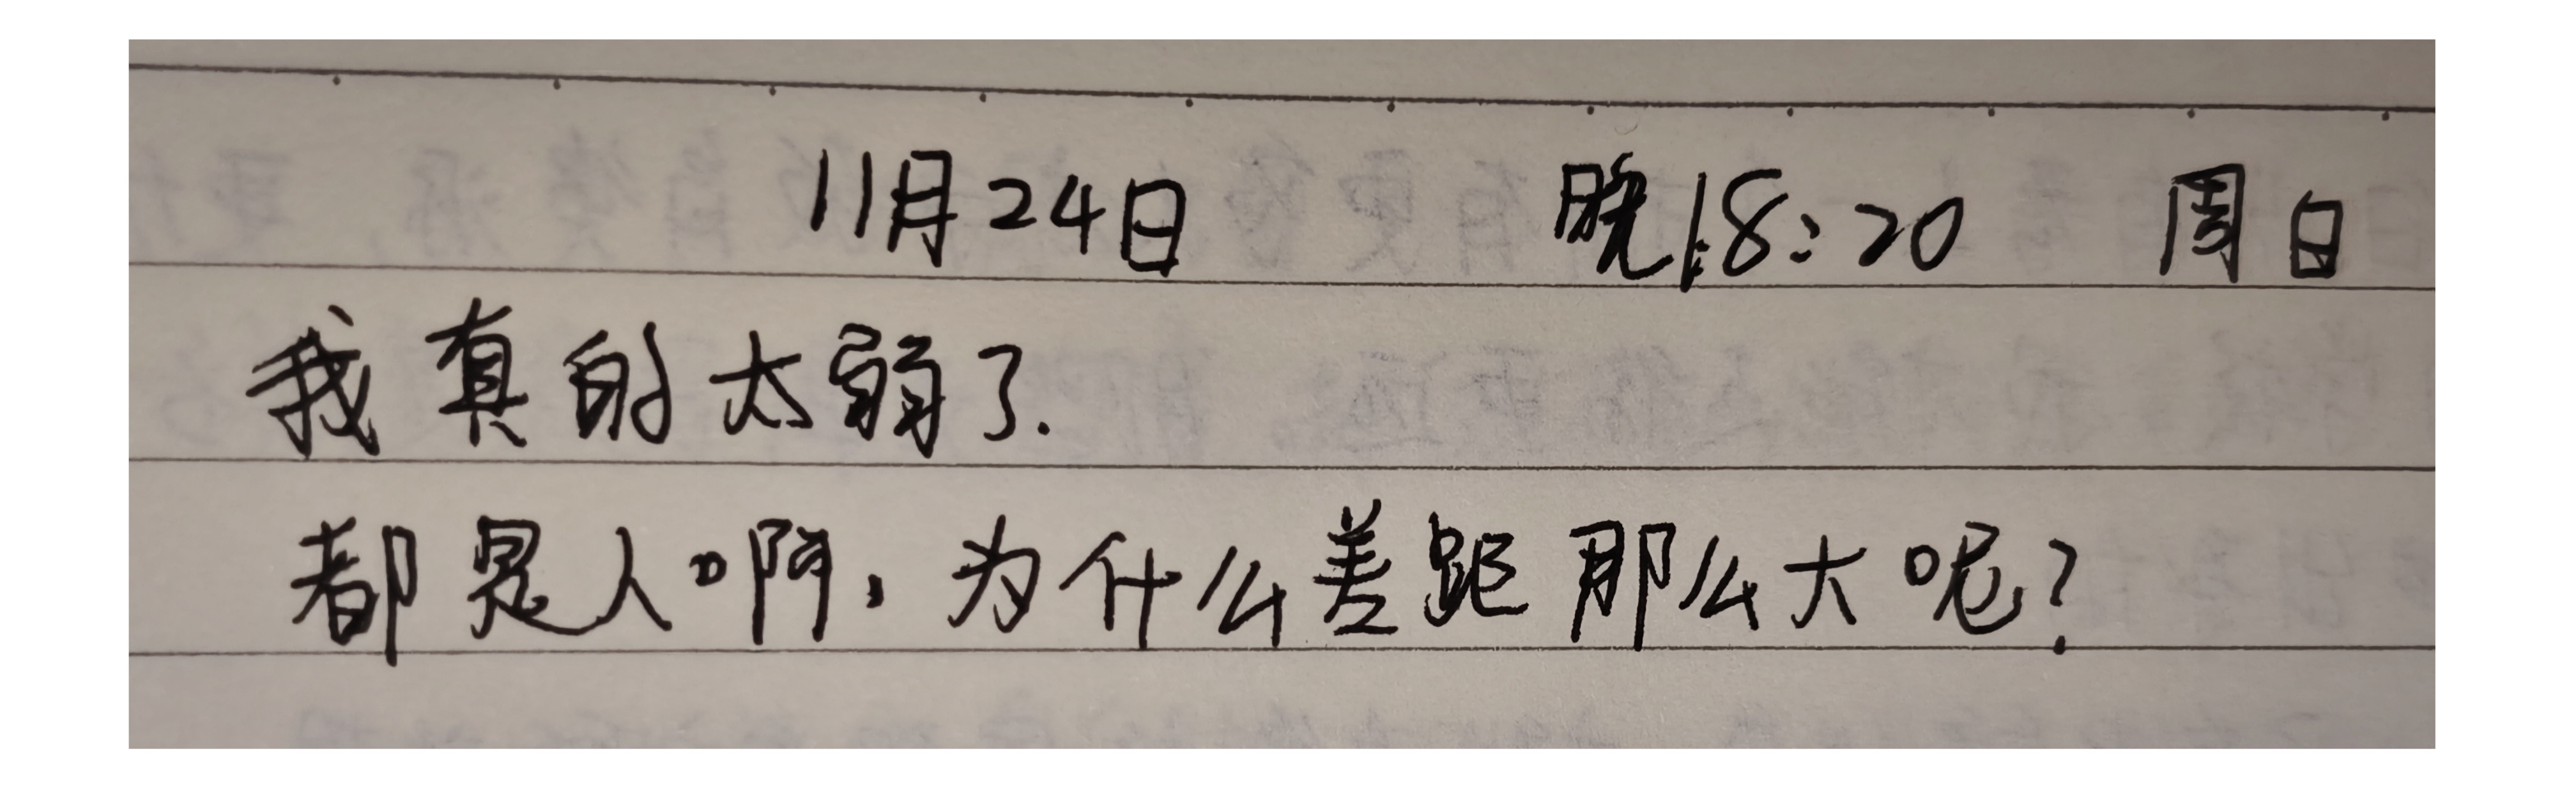 11月24日 晚18:20 周日
我真的太弱了.
都是人啊,为什么差距那么大呢?